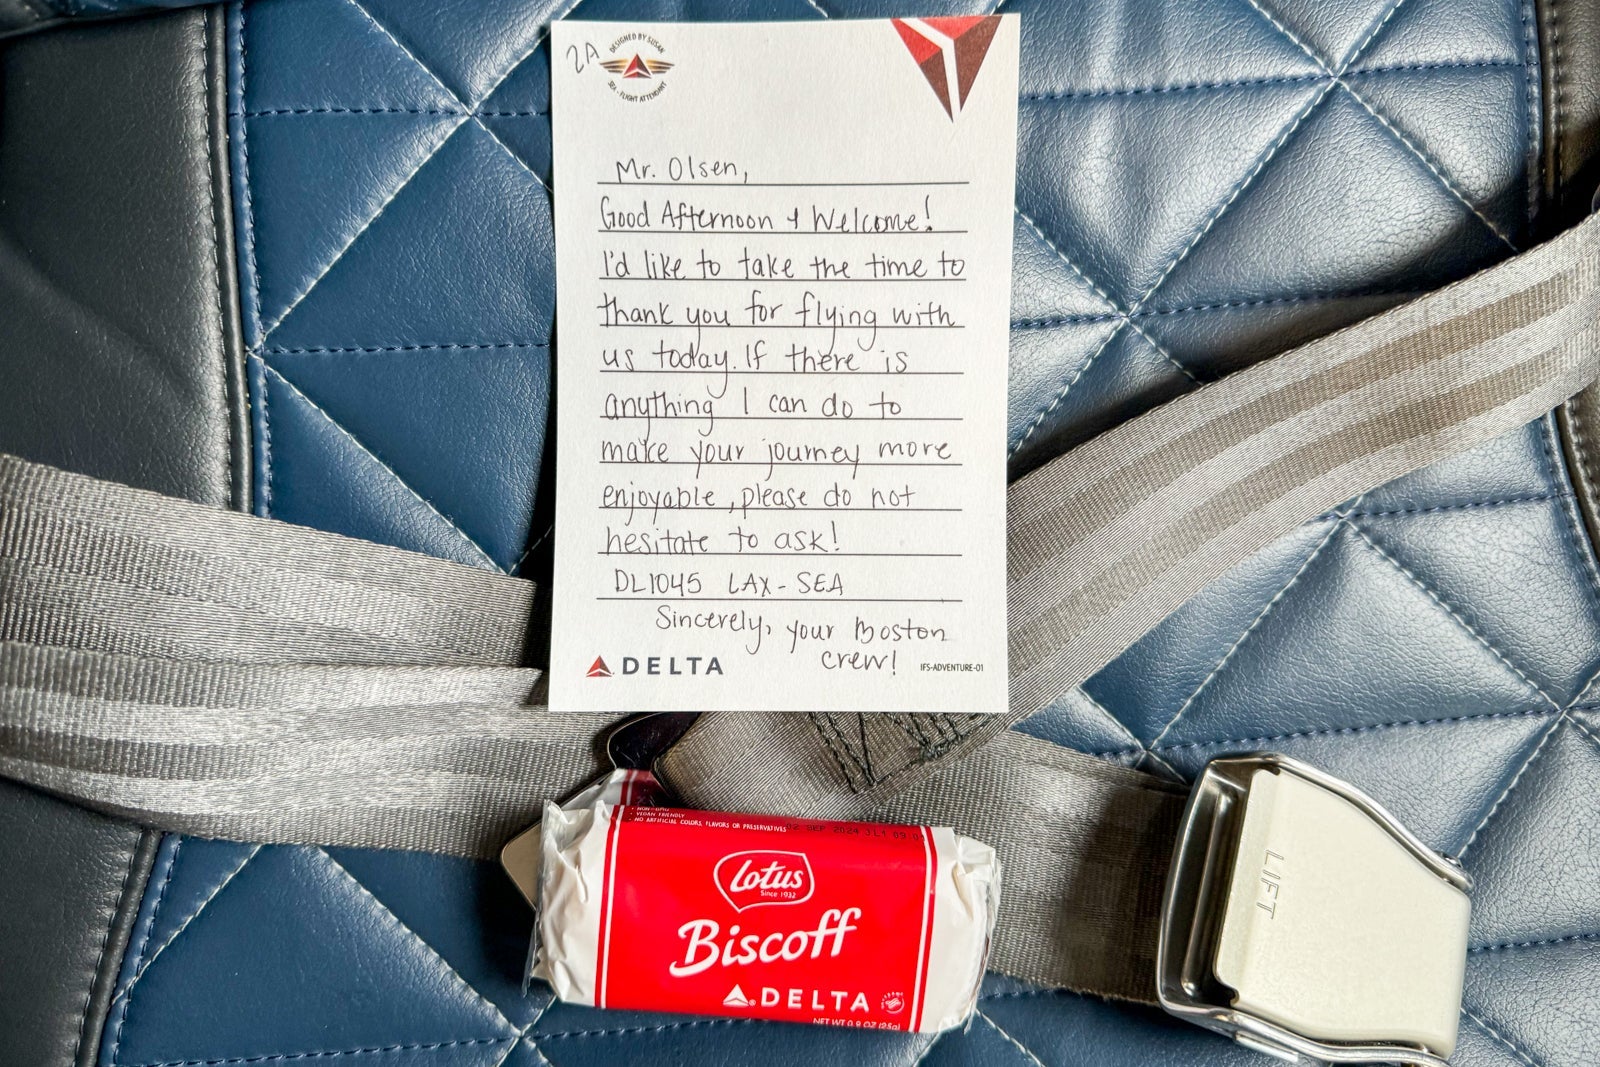 2A
DESIGNED BY SUSAN
SEA - FLIGHT ATTENDANT
Mr. Olsen,
Good Afternoon & Welcome!
I'd like to take the time to
thank you for flying with
us today. If there is
anything I can do to
make your journey more
enjoyable, please do not
hesitate to ask!
DL1045 LAX-SEA
Sincerely, your Boston
crew!
DELTA
IFS-ADVENTURE-01
• NON-GMO
• VEGAN FRIENDLY
• NO ARTIFICIAL COLORS, FLAVORS OR PRESERVATIVES
02 SEP 2024 JL1 09:0
Lotus
Since 1932
Biscoff
DELTA
NET WT 0.9 OZ (25g)
LIFT